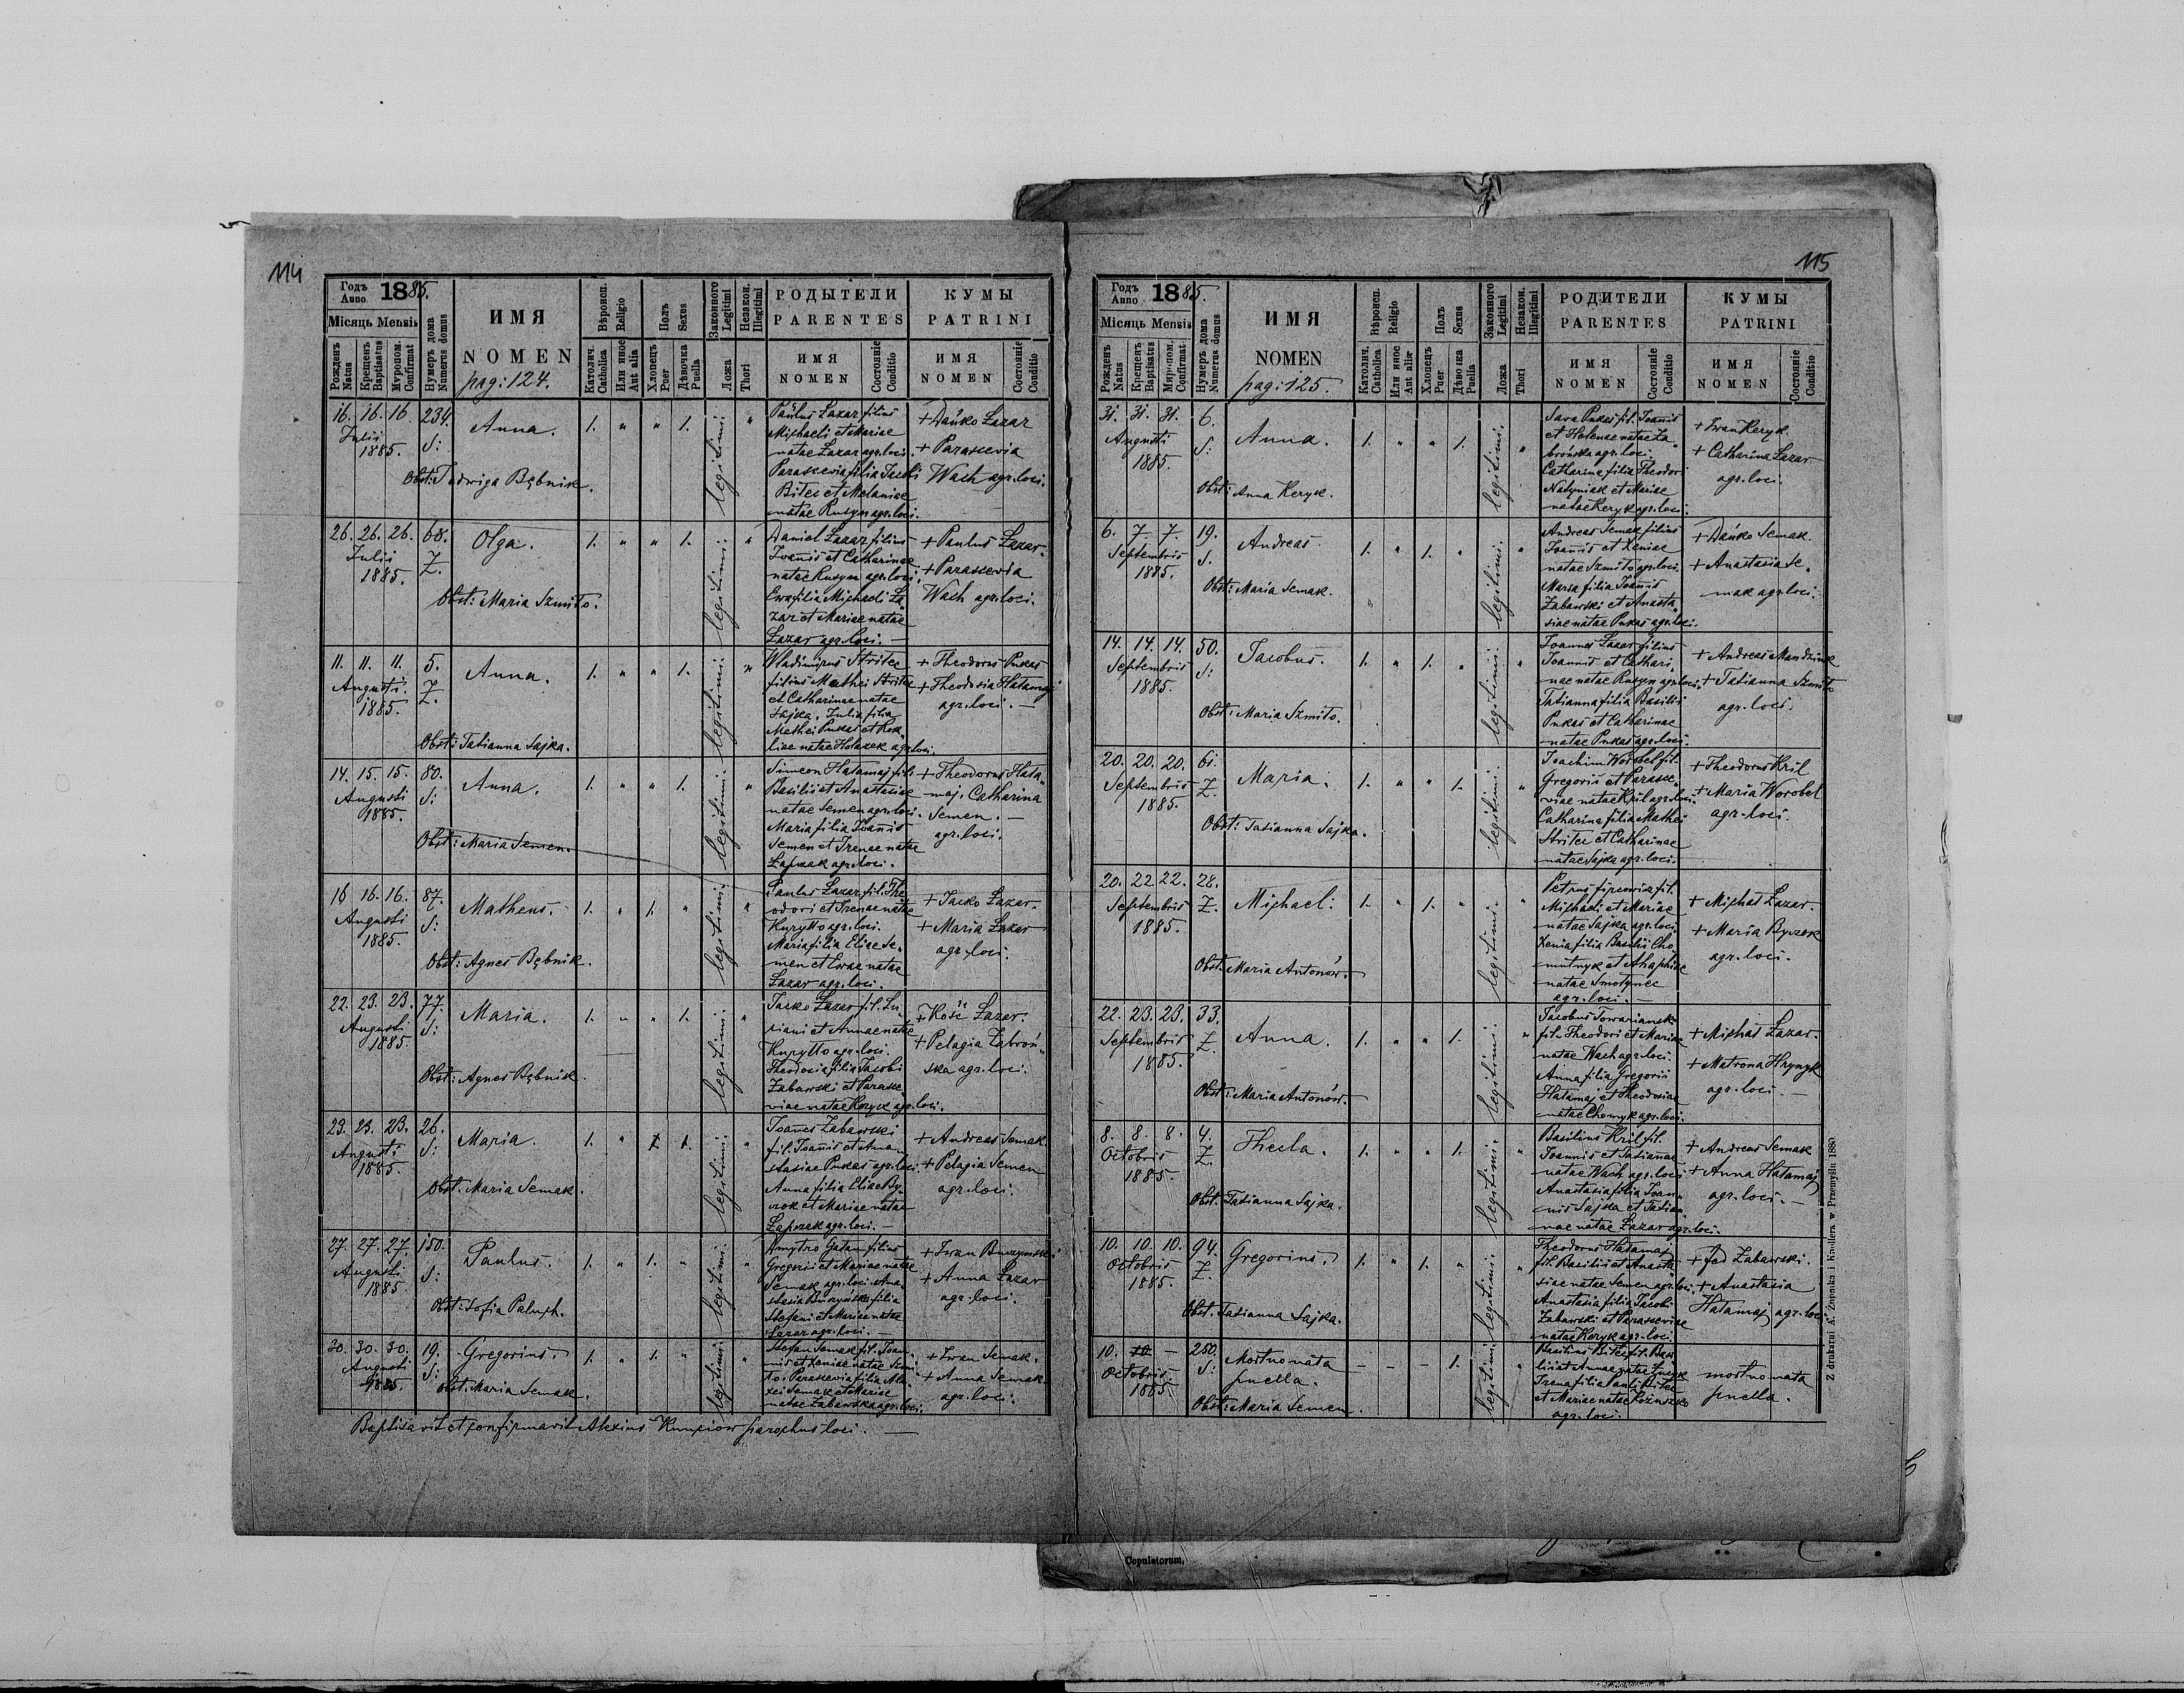 114
Годъ Anno 1885.
Місяць Mensis
Рожденъ Natus
Крещенъ Baptisatus
Муропом. Confirmat
Нумеръ дома Numerus domus
ИМЯ
NOMEN
pag: 124.
Вѣроисп. Religio
Католич. Catholica
Или иное Aut alia
Полъ Sexus
Хлопецъ Puer
Дѣвочка Puella
Законного Legitimi
Незакон. Illegitimi
Ложа Thori
РОДЫТЕЛИ
PARENTES
ИМЯ NOMEN
Состояніе Conditio
КУМЫ
PATRINI
ИМЯ NOMEN
Состояніе Conditio
16. 16. 16. 234.
Julii S:
1885.
Anna.
1. " " 1.
legitimi:
"
Obst: Jadwiga Bębnik.
Paulus Łazar filius
Michaeli et Mariae
natae Łazar agr. loci.
Parascevia filia Jacobi
Bitec et Melaniae
natae Rusyn agr. loci.
+ Dańko Łazar
+ Parascevia
Wach agr. loci.
26. 26. 26. 68.
Julii Z.
1885.
Olga.
1. " " 1.
legitimi:
"
Obst: Maria Szmito.
Daniel Łazar filius
Joannis et Catharinae
natae Rusyn agr. loci.
Ewa filia Michaeli Ła„
zar et Mariae natae
Łazar agr. loci. —
+ Paulus Łazar.
+ Parascevia
Wach agr. loci.
11. 11. 11. 5.
Augusti Z.
1885.
Anna.
1. " " 1.
legitimi:
"
Obst: Tatianna Sajka.
Wladimirus Stritec
filius Mathei Stritec
et Catharinae natae
Sajka. Julia filia
Mathei Pukas et
liae natae agr. loci.
+ Theodorus Pukas
+ Theodosia Hatamaj
agr. loci. —
14. 15. 15. 80.
Augusti S:
1885.
Anna.
1. " " 1.
legitimi:
"
Obst: Maria Semen.
Simeon Hatamaj fil.
Basilii et Anastasiae
natae Semen agr. loci.
Maria filia Joannis
Semen et Irenae natae
Łapczak agr. loci.
+ Theodorus Hata„
maj. Catharina
Semen. —
agr. loci.
16 16. 16. 87.
Augusti S:
1885.
Matheus.
1. " 1. "
legitimi:
"
Obst: Agnes Bębnik.
Paulus Łazar fil. The„
odori et Irenae natae
Kuryłło agr. loci.
Maria filia Eliae Se„
men et Evae natae
Łazar agr. loci.
+ Jacko Łazar.
+ Maria Łazar
agr. loci.
22. 23. 23. 77.
Augusti S:
1885.
Maria.
1. " " 1.
legitimi:
"
Obst: Agnes Bębnik.
Jacko Łazar fil. Lu„
ciani et Annae natae
Kuryłło agr. loci.
Theodosia filia Jacobi
Zabawski et Parasce„
viae natae Keryk agr. loci.
+ Kość Łazar.
+ Pelagia Zabroń„
ska agr. loci.
23. 23. 23. 26.
Augusti S:
1885.
Maria.
1. " 1.
legitimi:
"
Obst. Maria Semak.
Joanes Zabawski
fil. Joannis et Ana„
stasiae Pukas agr. loci.
Anna filia Eliae By„
czok et Mariae natae
Łapczak agr. loci. —
+ Andreas Semak
+ Pelagia Semen
agr. loci.
27. 27. 27. 150.
Augusti S:
1885.
Paulus.
1. " 1. "
legitimi:
"
Obst: Sofia Paluch.
Dmytro Gatan filius
Gregorii et Mariae natae
Semak agr. loci. Ana„
stasia Buczyńska filia
Stefani et Mariae natae
Łazar agr. loci. —
+ Iwan Buczyński
+ Anna Łazar
agr. loci.
30. 30. 30. 19.
Augusti S:
1885.
Gregorius.
1. " 1. "
legitimi:
"
Obst: Maria Semak.
Stefan Semak fil. Joan„
nis et Xeniae natae Szmi„
to. Parascevia filia Ale„
xei Semak et Mariae
natae Zabawska agr. loci.
+ Iwan Semak.
+ Anna Semak
agr. loci.
Baptisavit et confirmavit Alexius parochus loci. —
115
Годъ Anno 1885.
Місяць Mensis
Рожденъ Natus
Крещенъ Baptisatus
Миропом. Confirmat.
Нумеръ дома Numerus domus
ИМЯ
NOMEN
pag: 125.
Вѣроисп. Religio
Католич. Catholica
Или иное Aut alia
Полъ Sexus
Хлопецъ Puer
Дѣвочка Puella
Законного Legitimi
Незакон. Illegitimi
Ложа Thori
РОДИТЕЛИ
PARENTES
ИМЯ NOMEN
Состояніе Conditio
КУМЫ
PATRINI
ИМЯ NOMEN
Состояніе Conditio
31. 31. 31. 6.
Augusti S:
1885.
Anna.
1. " " 1.
legitimi:
"
Obst: Anna Keryk.
Sava Pukas fil. Joannis
et Helenae natae Za„
brońska agr. loci.
Catharina filia Theodori
Natyniak et Mariae
natae Keryk agr. loci.
+ Iwan Keryk.
+ Catharina Łazar
agr. loci.
6. 7. 7. 19.
Septembris S.
1885.
Andreas
1. " 1. "
legitimi:
"
Obst: Maria Semak.
Andreas Semak filius
Joannis et Xeniae
natae Szmito agr. loci.
Maria filia Joannis
Zabawski et Anasta„
siae natae Pukas agr. loci.
+ Dańko Semak.
+ Anastasia Se„
mak agr. loci.
14. 14. 14. 50.
Septembris S:
1885.
Jacobus.
1. " 1. "
legitimi:
"
Obst: Maria Szmito.
Joannes Łazar filius
Joannis et Cathari„
nae natae Rusyn agr. loci.
Tatianna filia Basilii
Pukas et Catharinae
natae Pukas agr. loci.
+ Andreas Mandziuk
+ Tatianna Szmito
agr. loci.
20. 20. 20. 61.
Septembris Z.
1885.
Maria.
1. " " 1.
legitimi:
"
Obst: Tatianna Sajka.
Joachim Worobel fil.
Gregorii et Parasce„
viae natae Kril agr. loci.
Catharina filia Mathei
Stritec et Catharinae
natae Sajka agr. loci.
+ Theodorus Kril
+ Maria Worobel
agr. loci.
20. 22 22. 28.
Septembris Z.
1885.
Michael:
1. " 1. "
legitimi:
"
Obst: Maria Antonów.
Petrus fil.
Michaeli et Mariae
natae Sajka agr. loci.
Xenia filia Basilii Cho„
mutnyk et Ahaphiae
natae Smotynec
agr. loci. —
+ Michał Łazar.
+ Maria Byczek
agr. loci.
22. 23. 23. 33.
Septembris Z.
1885.
Anna.
1. " " 1.
legitimi:
"
Obst: Maria Antonów.
Jacobus Towarianski
fil. Theodori et Mariae
natae Wach agr. loci.
Anna filia Gregorii
Hatamaj et Theodosiae
natae Chomyk agr. loci.
+ Michał Łazar.
+ Matrona Hrynyk
agr. loci. —
8. 8. 8. 4.
Octobris Z.
1885.
Thecla.
1. " " 1.
legitimi:
"
Obst: Tatianna Sajka.
Basilius Kril fil.
Joannis et Tatiannae
natae Wach agr. loci
Anastasia filia Joan„
nis Sajka et Tatian„
nae natae Łazar agr. loci.
+ Andreas Semak
+ Anna Hatamaj
agr. loci. —
10. 10. 10. 94.
Octobris Z.
1885.
Gregorius.
1. " 1. "
legitimi:
"
Obst. Tatianna Sajka.
Theodorus Hatamaj
fil. Basilii et Anasta„
siae natae Semen agr. loci.
Anastasia filia Jacobi
Zabawski et Parasceviae
natae Keryk agr. loci.
+ Fed Zabawski.
+ Anastasia
Hatamaj agr. loci
10. 10 — 250.
Octobris. S:
1885.
Mortuo nata
puella.
— — — 1.
legitimi:
Obst: Maria Semen.
Basilius Bitec fil. Basi„
lii et Annae natae
Irena filia Pauli Bitec
et Mariae natae
agr. loci.
mortuo nata
puella.
Z drukarni A. Żupnika i Knollera w Przemyślu 1880
Copulatorum,